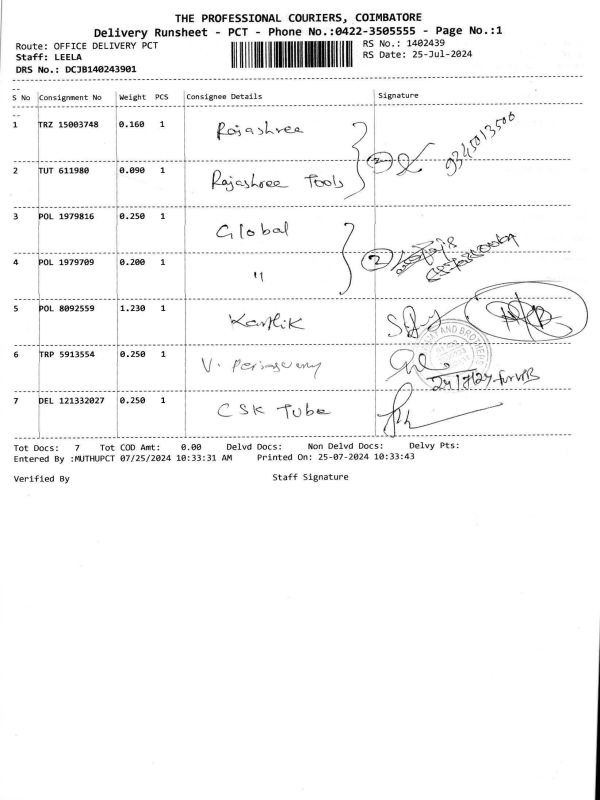 THE PROFESSIONAL COURIERS, COIMBATORE
Delivery Runsheet - PCT - Phone No.:0422-3505555 - Page No.:1
Route: OFFICE DELIVERY PCT
RS No.: 1402439
Staff: LEELA
RS Date: 25-Jul-2024
DRS No.: DCJB140243901
S No Consignment No Weight PCS Consignee Details Signature
1 TRZ 15003748 0.160 1 Rajashree 9345013500
2 TUT 611980 0.090 1 Rajashree Tools 2
3 POL 1979816 0.250 1 Global
4 POL 1979709 0.200 1 " 2
5 POL 8092559 1.230 1 Karthik
6 TRP 5913554 0.250 1 V. Periasamy
7 DEL 121332027 0.250 1 CSK Tube
Tot Docs: 7 Tot COD Amt: 0.00 Delvd Docs: Non Delvd Docs: Delvy Pts:
Entered By :MUTHUPCT 07/25/2024 10:33:31 AM Printed On: 25-07-2024 10:33:43
Verified By Staff Signature